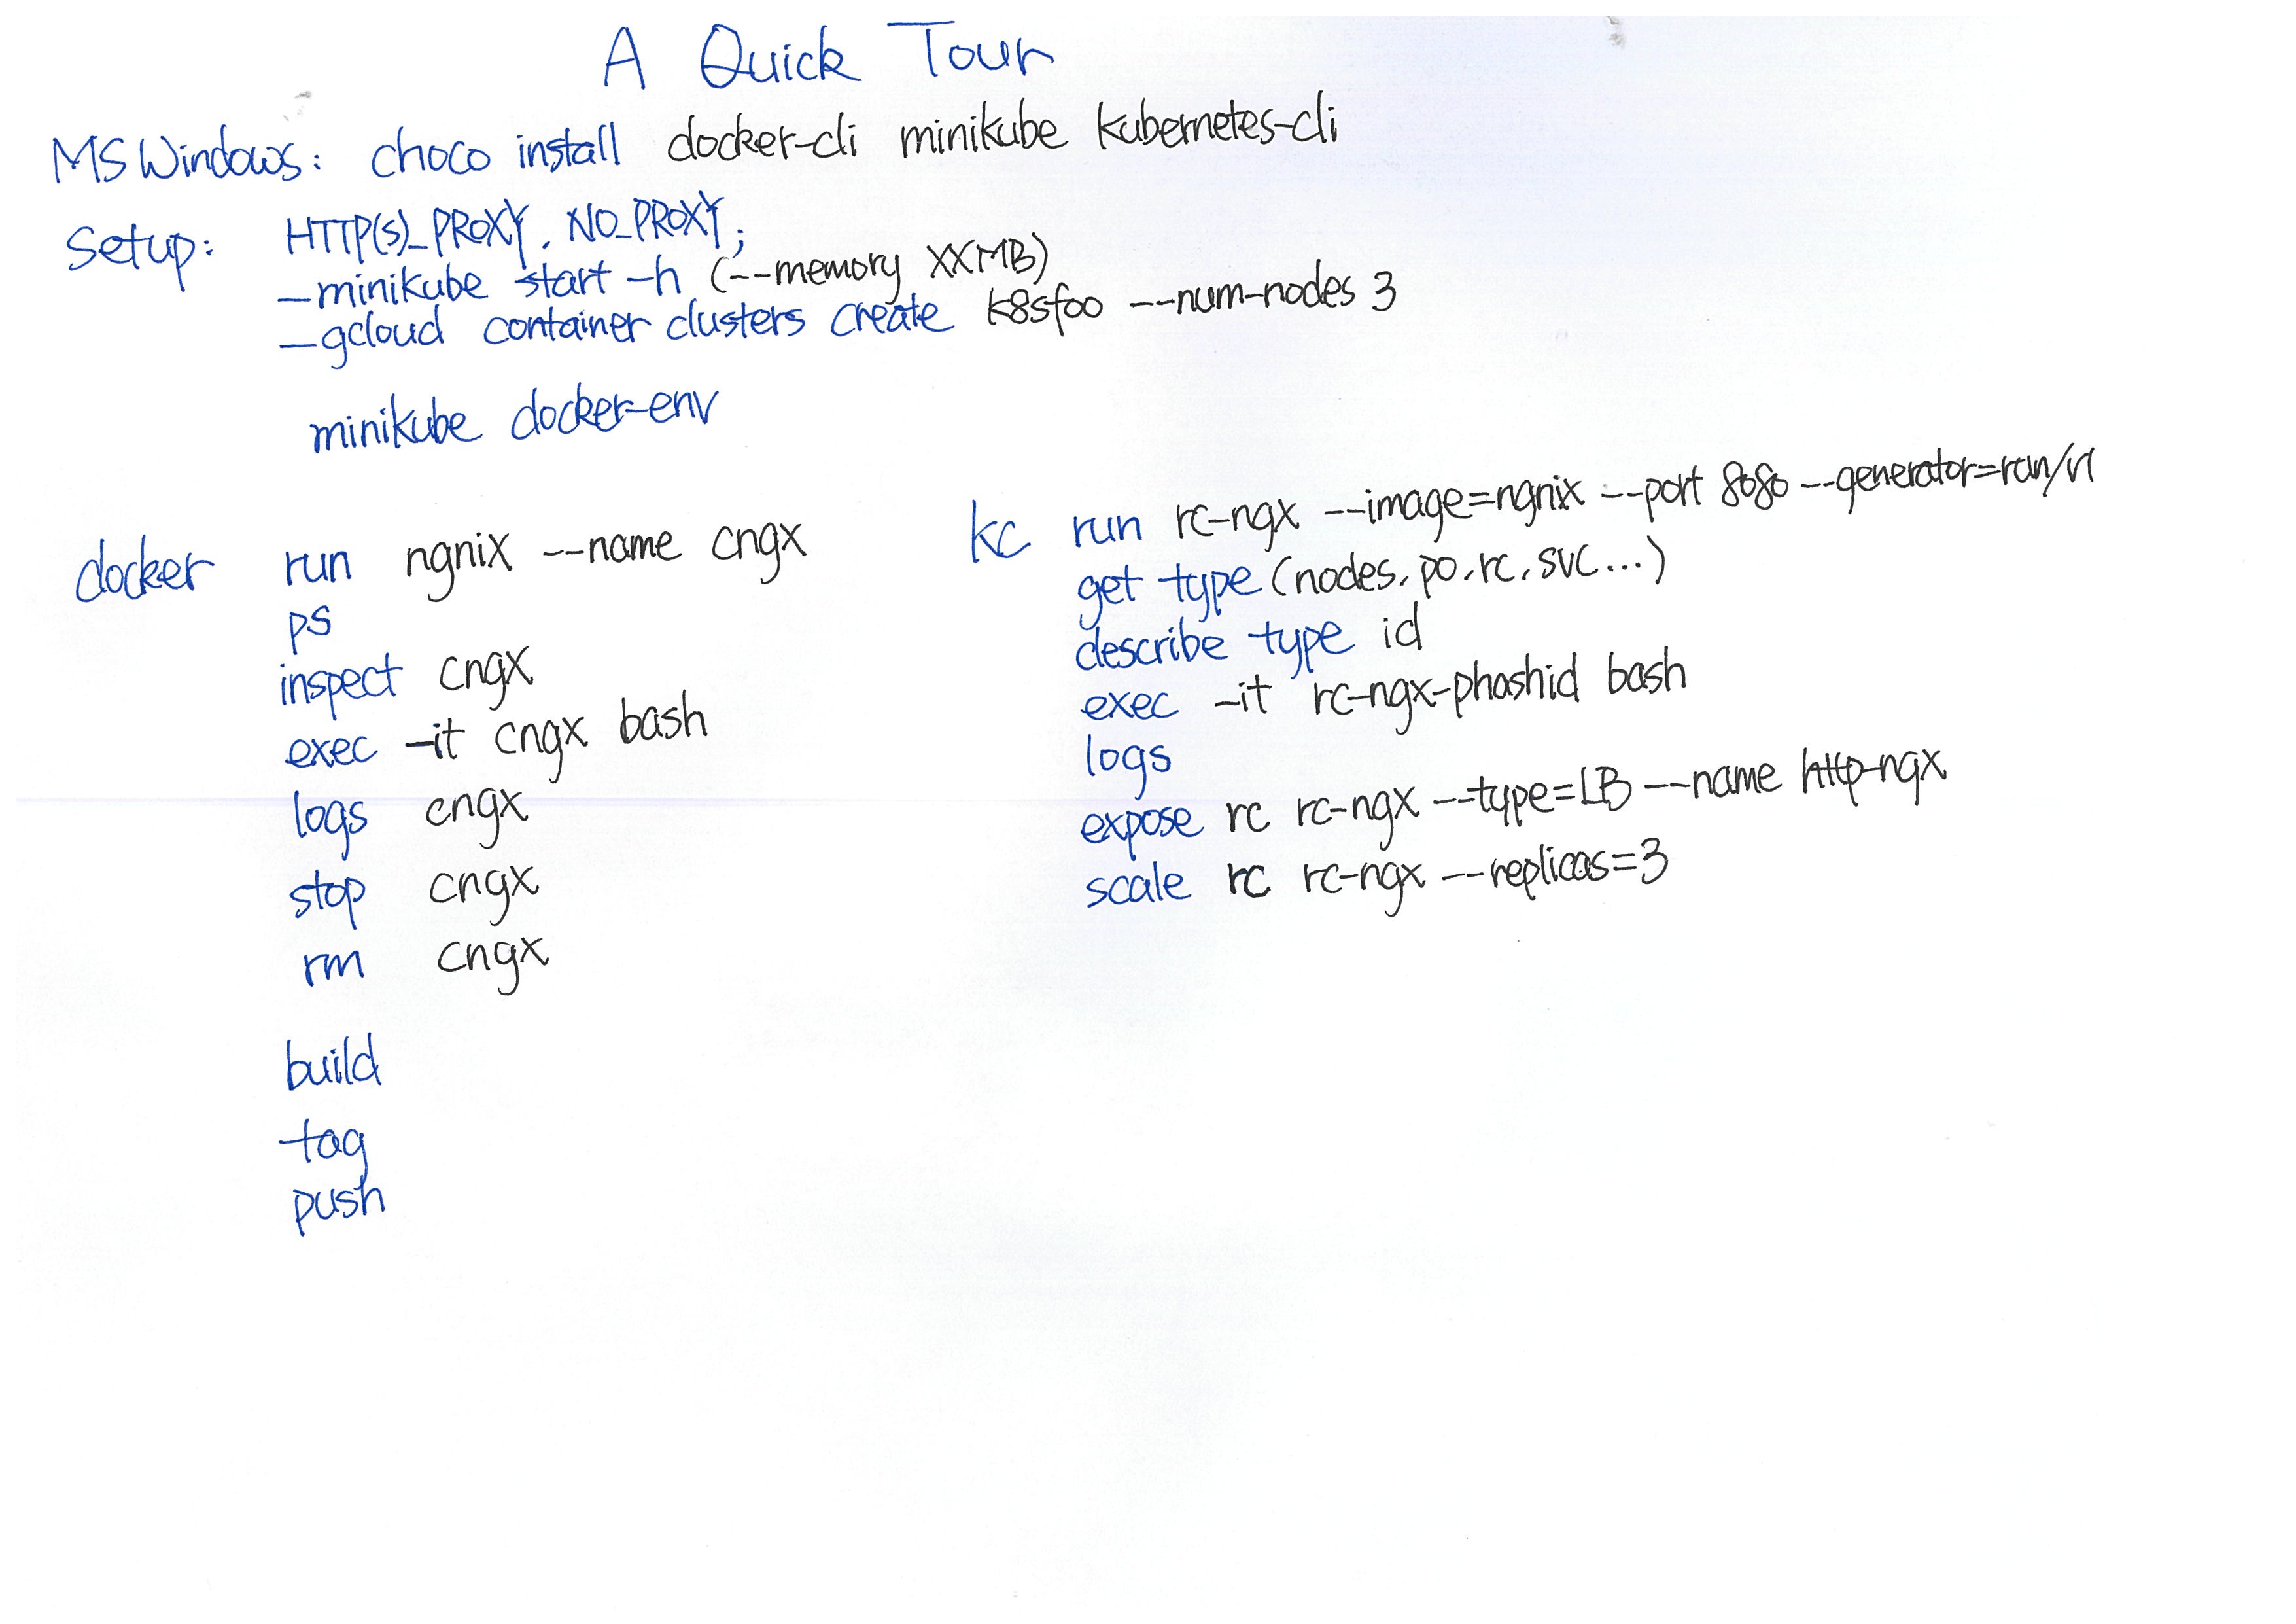 A Quick Tour
MS Windows: choco install docker-cli minikube kubernetes-cli
Setup: HTTP(S)_PROXY, NO_PROXY;
-minikube start -h (--memory XXMB)
-gcloud container clusters create k8sfoo --num-nodes 3
minikube docker-env
docker run ngnix --name cngx
ps
inspect cngx
exec -it cngx bash
logs cngx
stop cngx
rm cngx
build
tag
push
kc run rc-ngx --image=ngnix --port 8080 --generator=run/v1
get type (nodes, po, rc, svc...)
describe type id
exec -it rc-ngx-phashid bash
logs
expose rc rc-ngx --type=LB --name http-ngx
scale rc rc-ngx --replicas=3